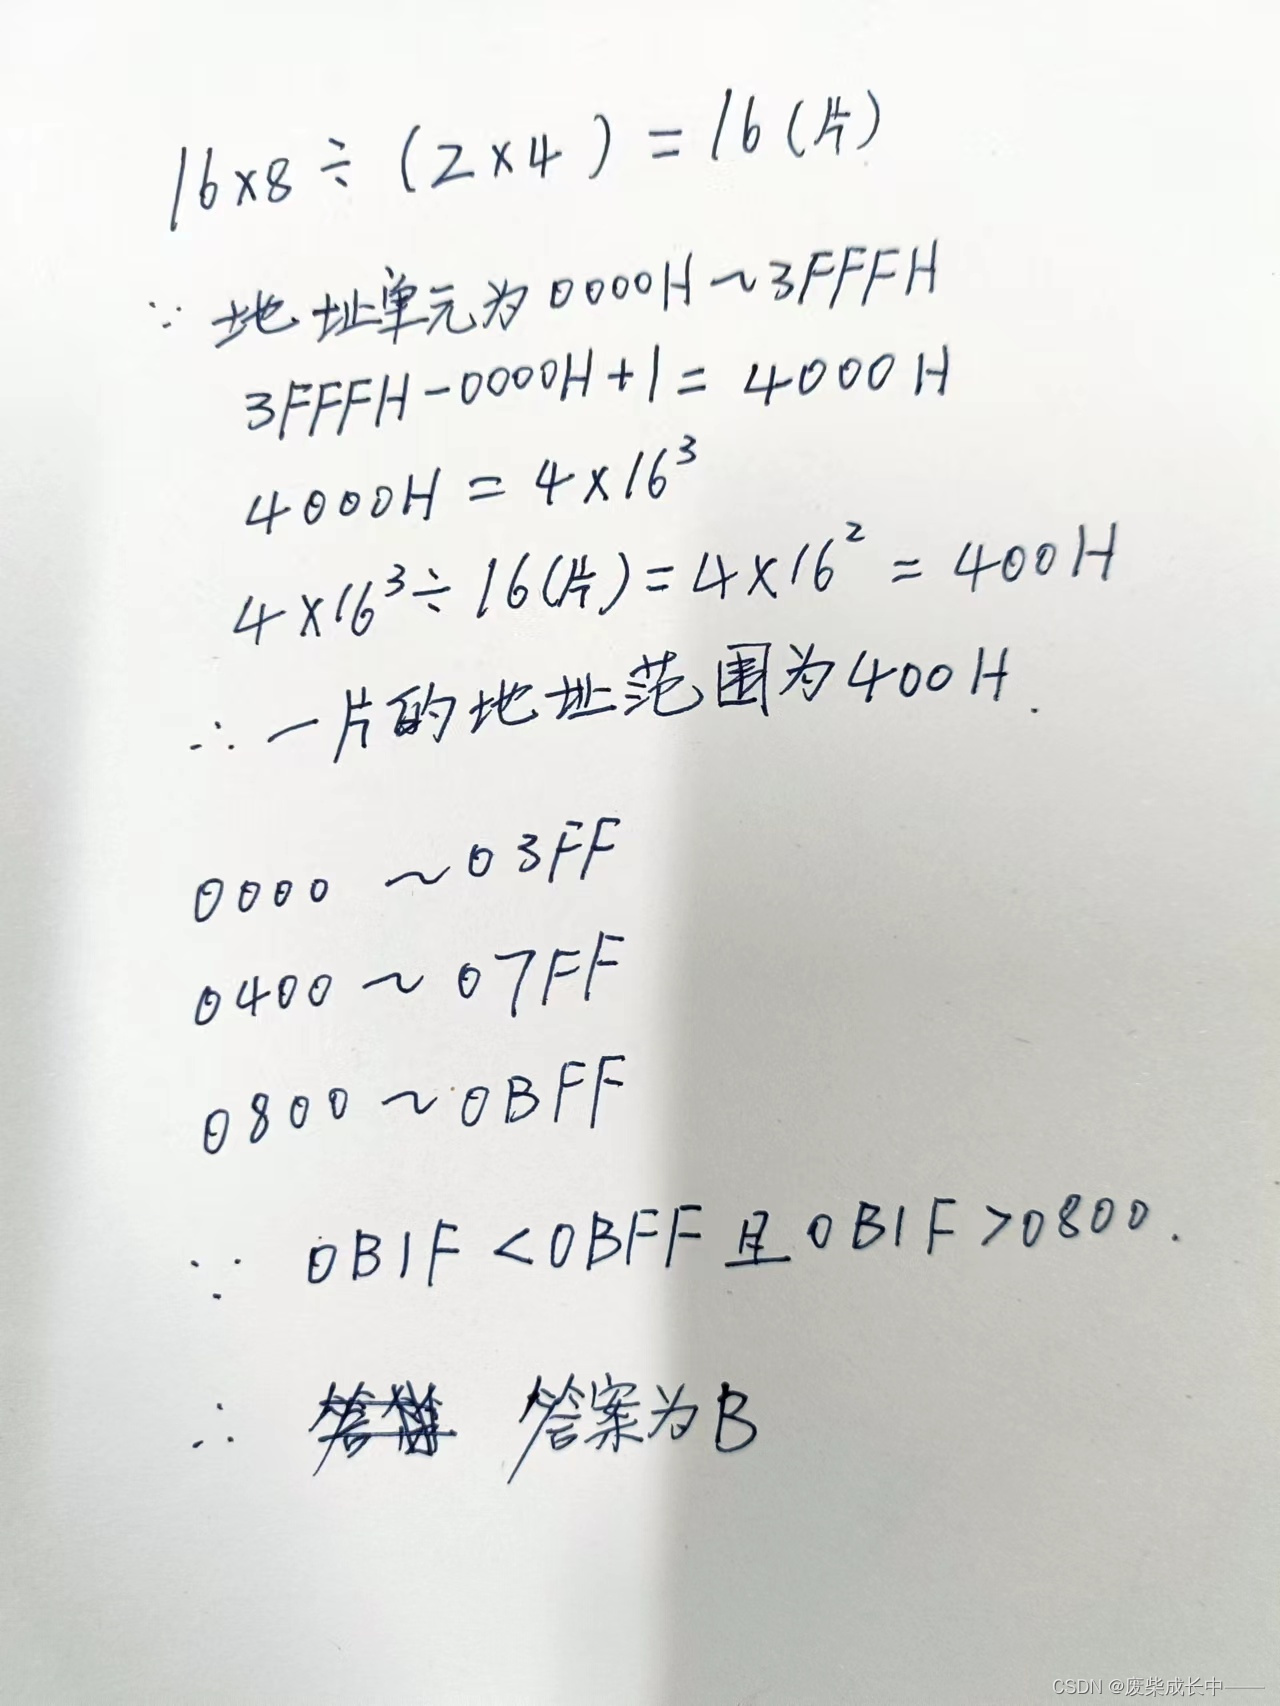 16×8÷(2×4)=16(片)
∵ 地址单元为0000H~3FFFH
3FFFH-0000H+1=4000H
4000H=4×16³
4×16³÷16(片)=4×16²=400H
∴ 一片的地址范围为400H.
0000~03FF
0400~07FF
0800~0BFF
∵ 0B1F<0BFF且0B1F>0800.
∴ 答案为B
CSDN @废柴成长中——